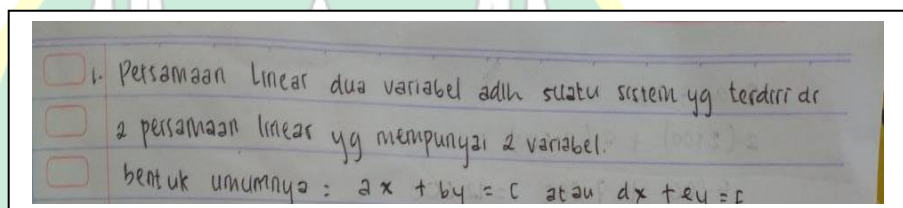 1. Persamaan Linear dua variabel adlh suatu sistem yg terdiri dr
2 persamaan linear yg mempunyai 2 variabel.
bentuk umumnya : ax + by = c atau dx + ey = f